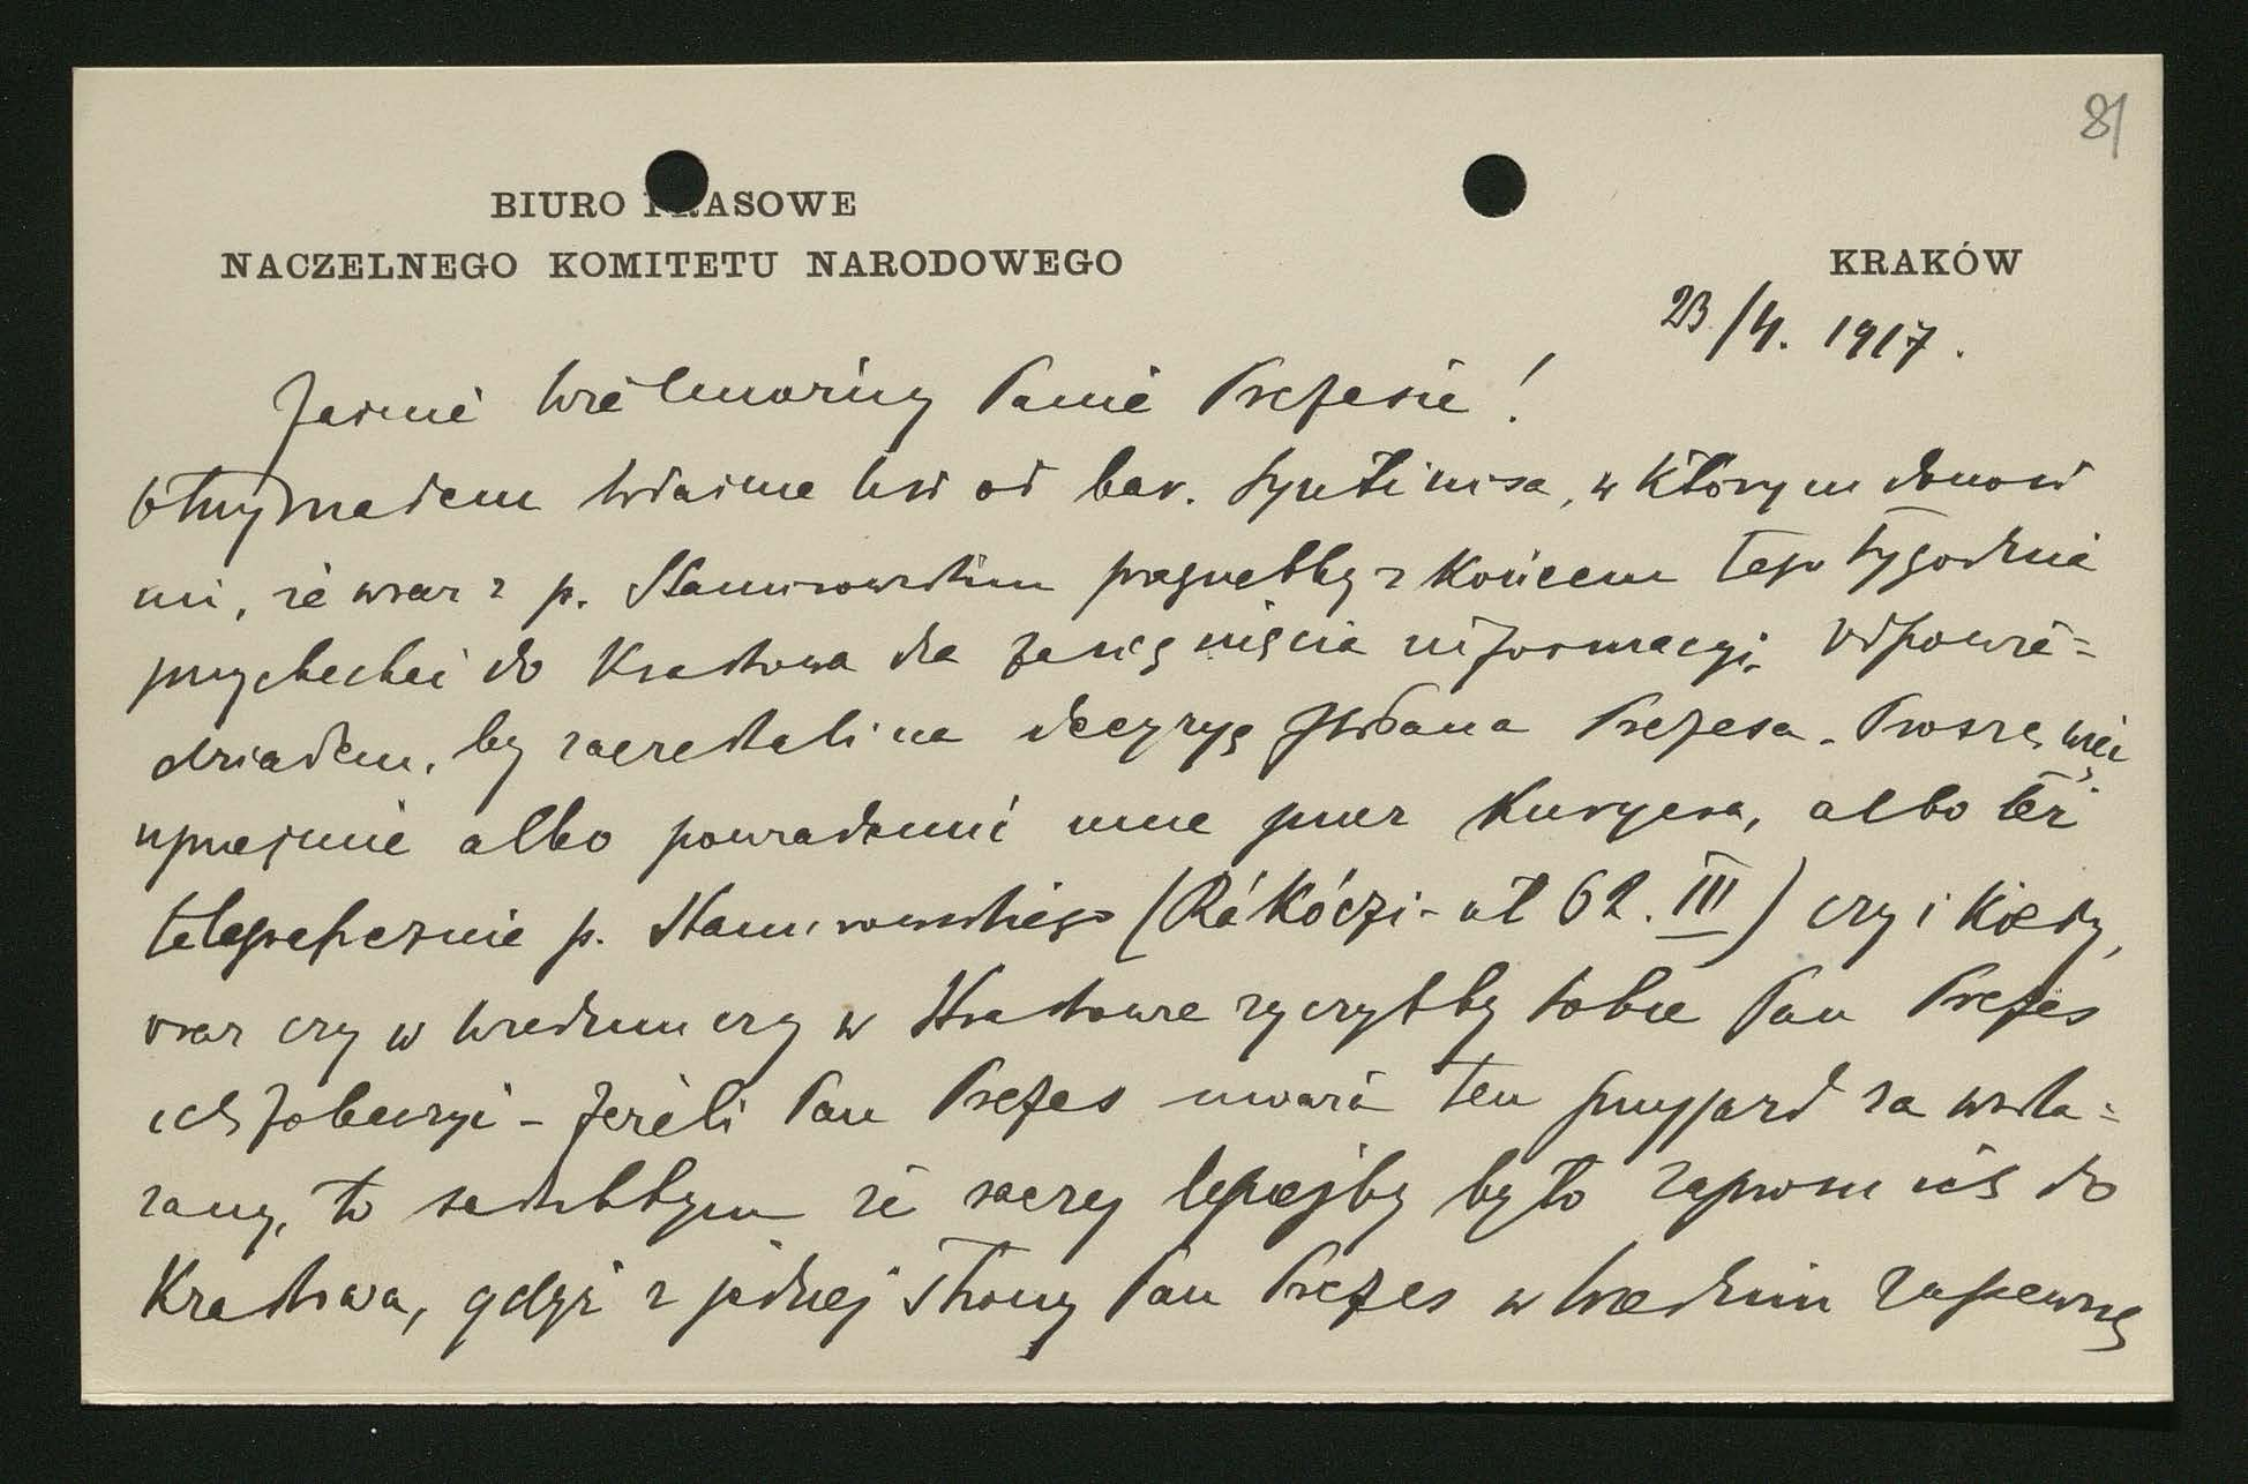 81
BIURO PRASOWE
NACZELNEGO KOMITETU NARODOWEGO
KRAKÓW
23/4. 1917.
Jaśnie Wielmożny Panie Prezesie!
Otrzymałem właśnie list od bar. Syntinisa, w którym donosi
mi, że wraz z p. Stamirowskim pragnęłby z końcem tego tygodnia
przyjechać do Krakowa dla zasięgnięcia informacyi. Odpowie=
działem, by zaczekali na decyzyę JWPana Prezesa. Proszę więc
uprzejmie albo powiadomić mnie przez Kuryera, albo też
telegraficznie p. Stamirowskiego (Rákóczi-út 62. III) czy i kiedy,
oraz czy w Wiedniu czy w Krakowie życzyłby sobie Pan Prezes
ich zobaczyć - Jeżeli Pan Prezes uważa ten przyjazd za wska=
zany, to sądziłbym że raczej lepiejby było zaprosić ich do
Krakowa, gdyż z jednej strony Pan Prezes w Wiedniu zapewne